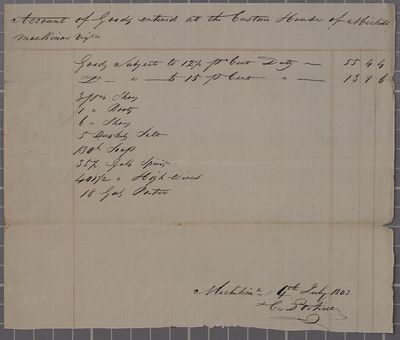 Account of Goods entered at the Custom House of Michili
mackinac Viz
Goods Subject to 12½ pr Cent Duty — 55 4 4
Do — " — to 15 pr Cent " — 13 8 6
3 prs Shoes
1 " Boots
6 " Shoes
5 Bushels Salt
130 lb Soap
35½ Galls Spirits
401½ " High Wines
18 Galls Porter
Michilimc 9th July 1803